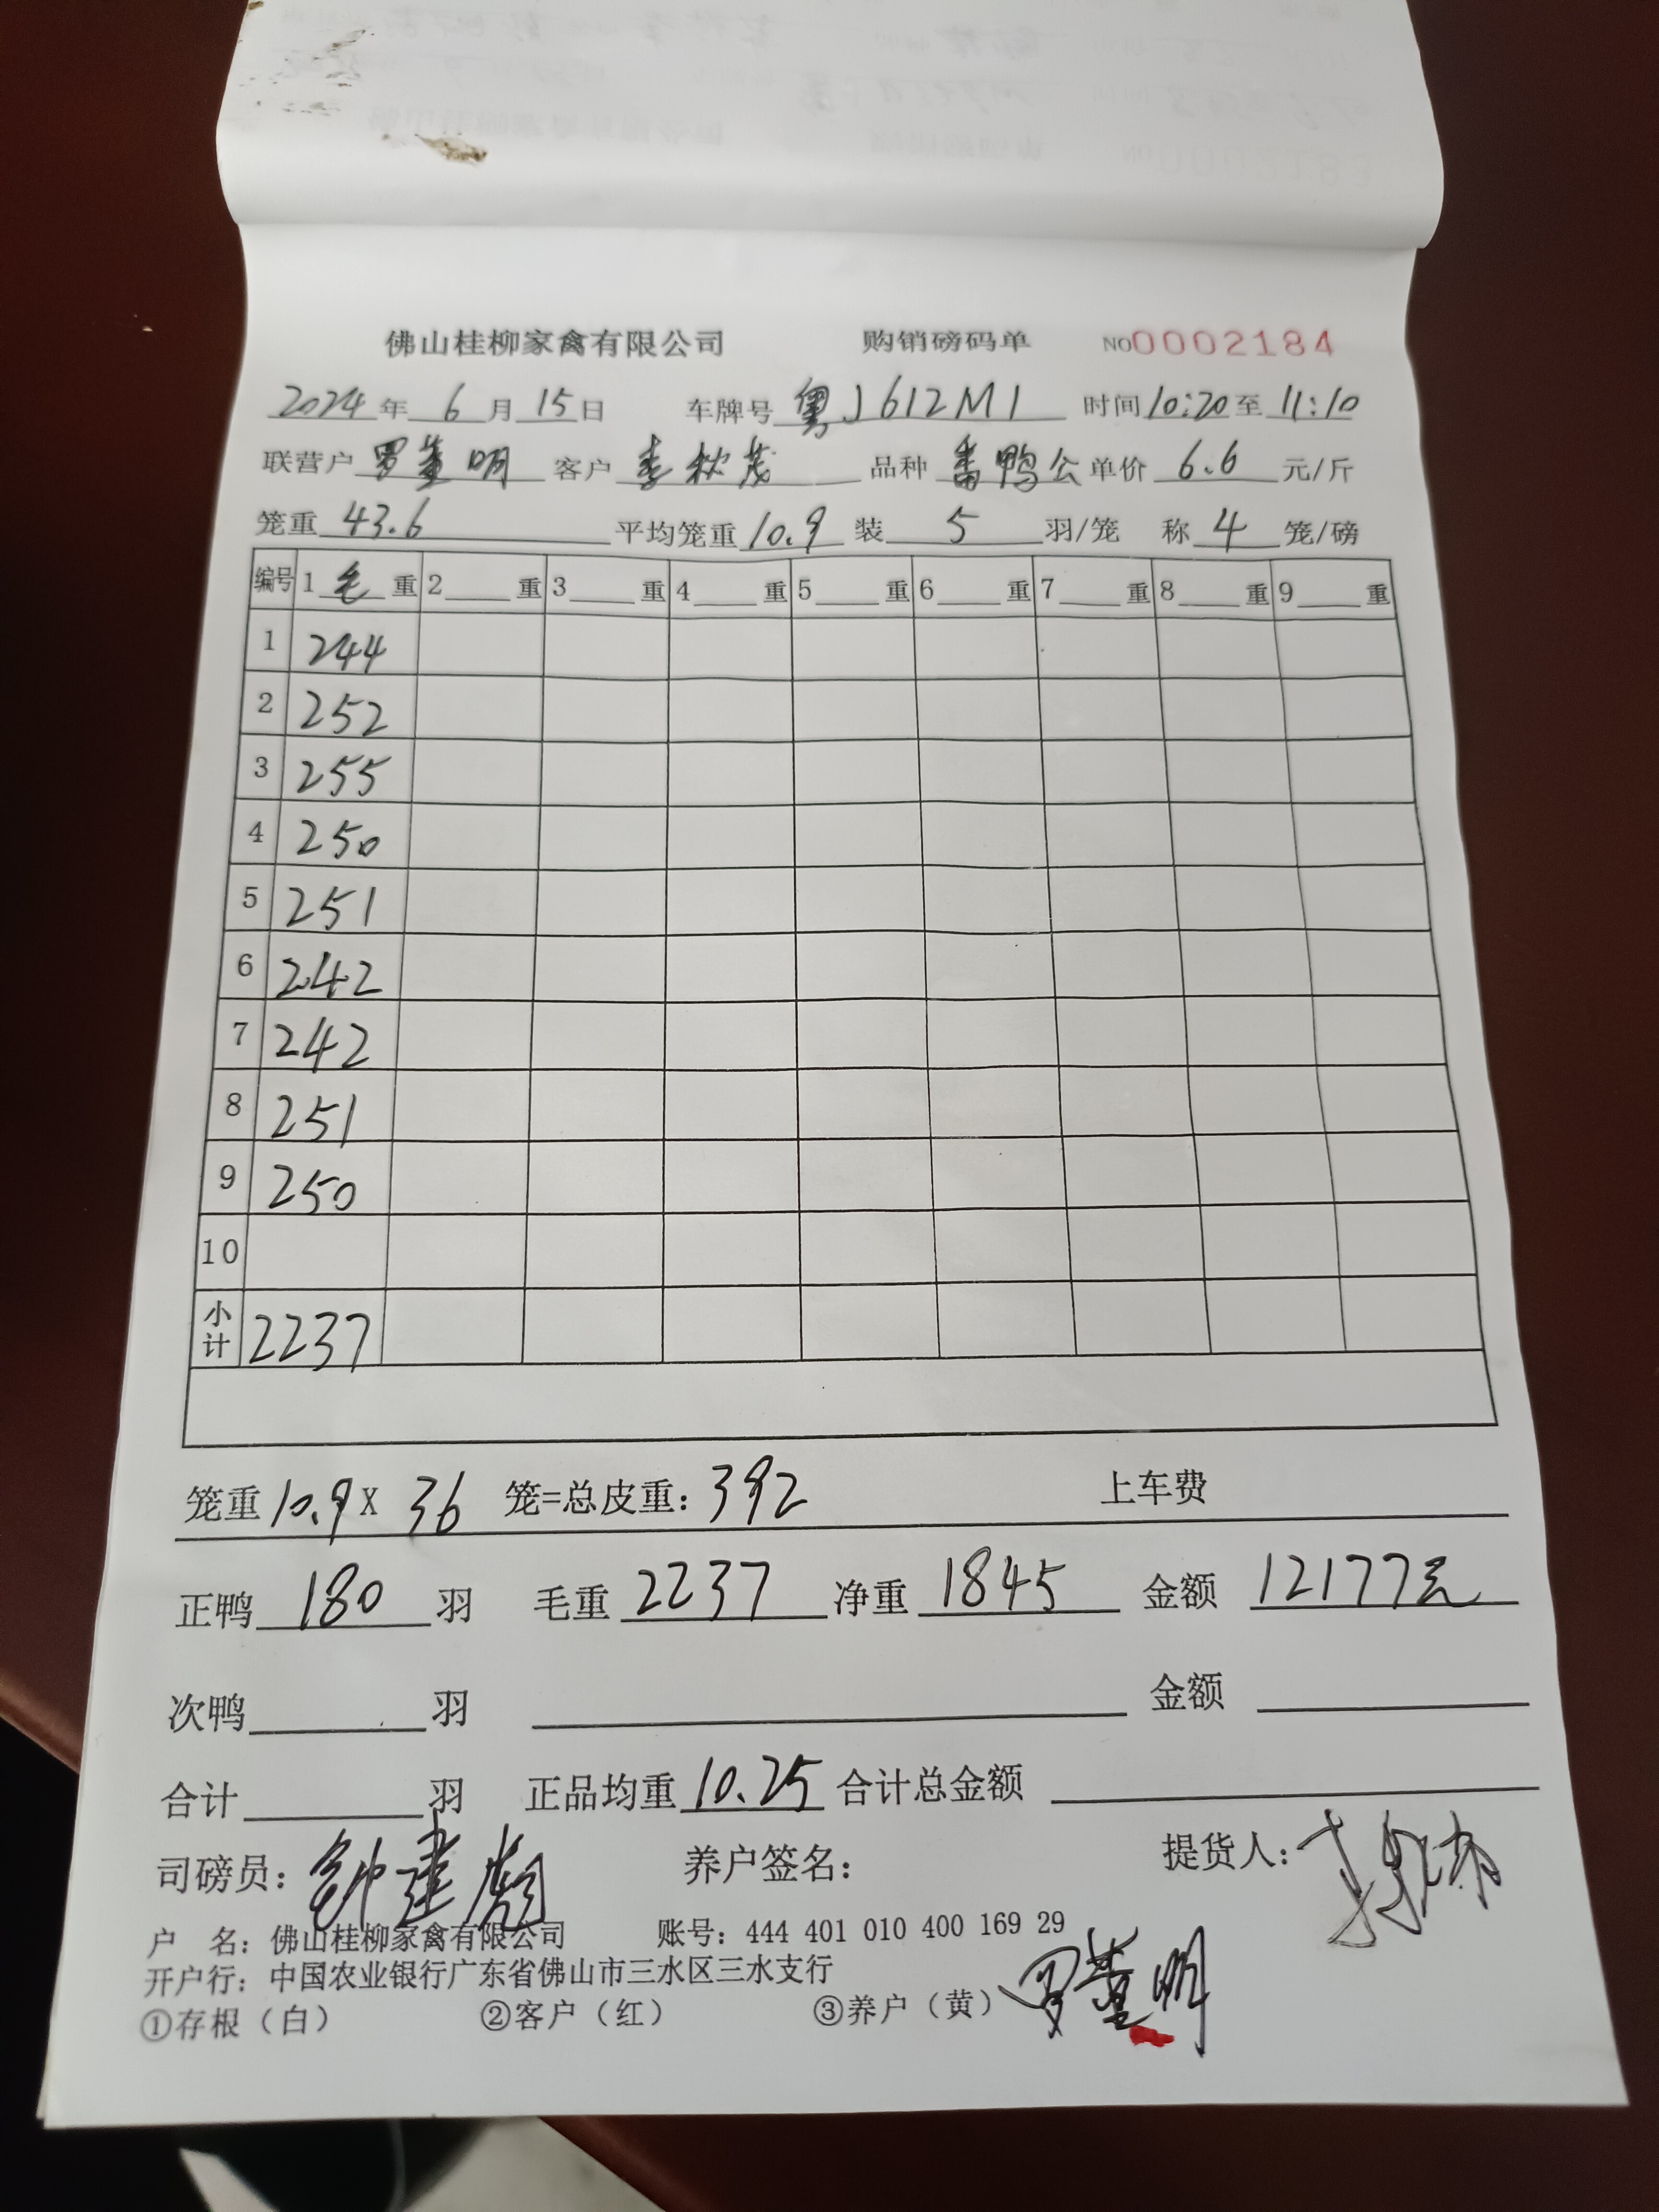 佛山桂柳家禽有限公司 购销磅码单 NO0002184
2024年 6月15日 车牌号 粤J612M1 时间10:20至11:10
联营户 罗 明 客户 李秋茂 品种 番鸭公 单价 6.6 元/斤
笼重 43.6 平均笼重10.9 装 5 羽/笼 称 4 笼/磅
编号 1毛重 2 重 3 重 4 重 5 重 6 重 7 重 8 重 9 重
1 244
2 252
3 255
4 250
5 251
6 242
7 242
8 251
9 250
10
小计 2237
笼重10.9X 36 笼=总皮重:392 上车费
正鸭 180 羽 毛重 2237 净重 1845 金额 12177元
次鸭 羽 金额
合计 羽 正品均重 10.25 合计总金额
司磅员: 钟建 养户签名: 提货人:
户 名: 佛山桂柳家禽有限公司 账号: 444 401 010 400 169 29
开户行: 中国农业银行广东省佛山市三水区三水支行
①存根(白) ②客户(红) ③养户(黄) 罗 明